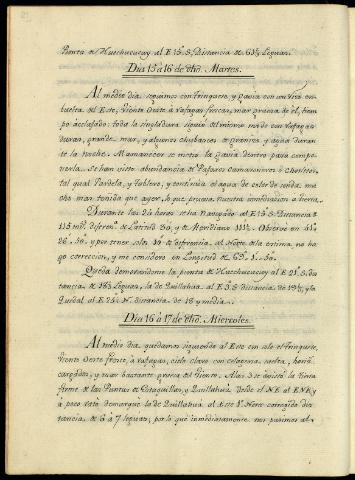 Punta de Huechucucuy al E 15.S, Distancia de 63½ Leguas.
Dia 15 a 16 de dho. Martes.
Al medio dia seguimos con trinquete, y gavia con un rizo
vuelta del Este, Viento Oeste á rafagas frescas, mar gruesa de el, tiem
po aclafado: toda la singladura siguió del mismo modo con rafagas
duras, grande mar, y algunos chubascos de granizo y agua durante
la noche. Al amanecer se metió la gavia dentro para compo-
nerla. Se han visto abundancia de Pajaros Camaroneros ó Chorlitos,
tal qual Pardela, y tablero, y continúa el agua de color de sonda mu-
cho mas tenida que ayer, lo que prueva nuestra continuacion á tierra.
Durante las 24 horas se ha navegado al E 15 S. Distancia de
115 mills. diferenª de Latitud 30, y de Meridiano 111½. Observé en 41º
26'. 30" y por tener solos 30" de diferencia al Norte de la estima, no ha
go correccion, y me considero en Longitud de 69º. 1'. 30".
Queda demorandome la punta de Huechucucuy al E 21º. S. dis
tancia de 18⅔ Leguas, la de Quillahua al E 3. S. distancia de 19½, y la
Quedal al E 25 N. distancia de 18 y media.
Dia 16 á 17 de dho. Miercoles.
Al medio dia quedamos siguiendo al Este con solo el trinquete,
Viento Oeste fresco, á rafagas, cielo claro con celageria suelta, horizᵗᵉ
cargados, y mar bastante gruesa del Viento. A las 3 se avistó la tierra
firme de las Puntas de Estaquillas, y Quillahua desde el NE al ENE, y
á poco rato demarqué la de Quillahua al Este 1º. Norte corregido dis
tancia de 6 á 7 leguas; por lo que inmediatamente nos pusimos al